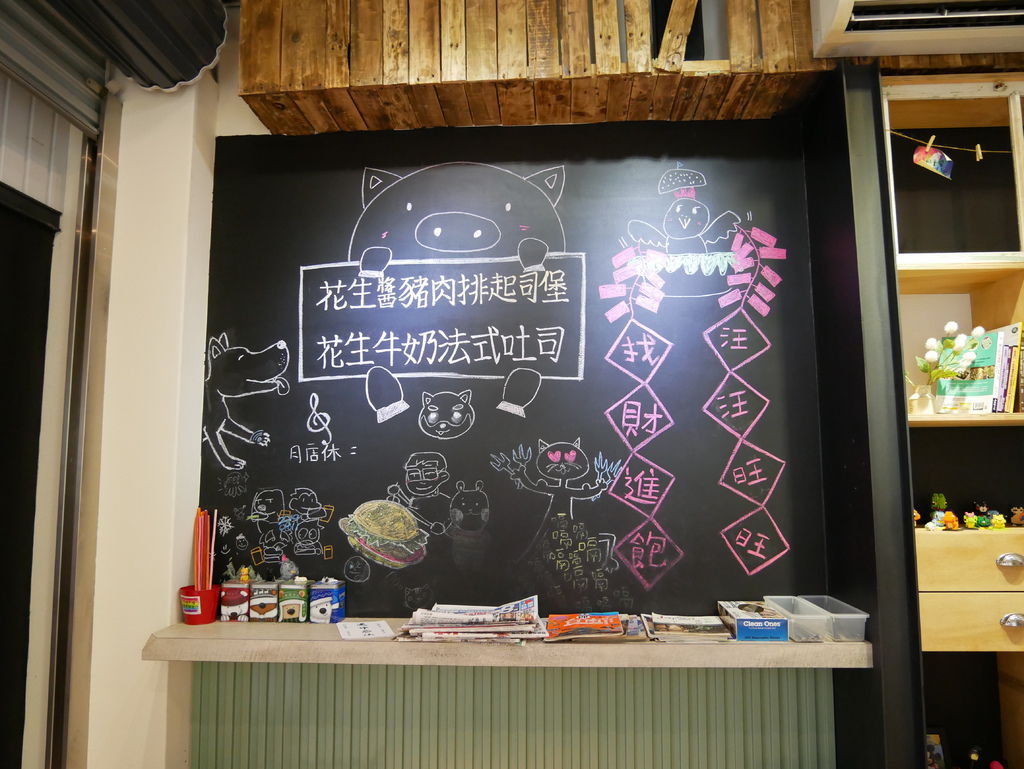 花生醬豬肉排起司堡
花生牛奶法式吐司
汪汪旺旺
找財進飽
月店休:
嗝嗝嗝嗝嗝嗝
Clean Ones